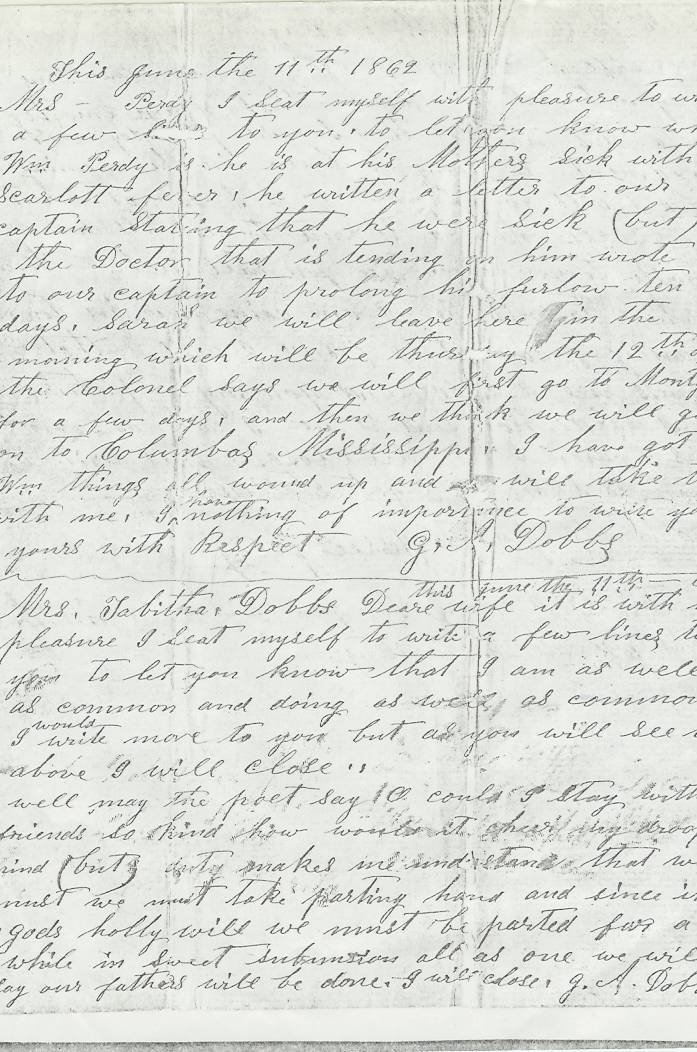 This June the 11th 1862
Mrs - Perdy I Seat myself with pleasure to
a few lines to you, to let you know
Wm Perdy is he is at his Mothers Sick with
Scarlott fever, he written a letter to our
captain Stating that he were Sick (but)
the Doctor that is tending on him wrote
to our captain to prolong his furlow ten
days, Sarah we will leave here in the
morning which will be thursday the 12th
the Colonel Says we will first go to
for a few days, and then we think we will
on to Columbas Mississippi, I have got
Wm things all wound up and will take
with me, I have nothing of importence to write
yours with Respect G. A. Dobbs
this June the 11th
Mrs. Tabitha Dobbs Deare wife it is with
pleasure I Seat myself to write a few lines
you to let you know that I am as well
as common and doing as well as
I would write more to you but as you will see
above I will close.
well may the poet say O could I stay
friends so kind how would it cheer my
(but) duty makes me understand that
must we must take parting hand and since
gods holly will we must be parted for a
while in sweet submission all as one we
our fathers will be done. I will close, G. A.